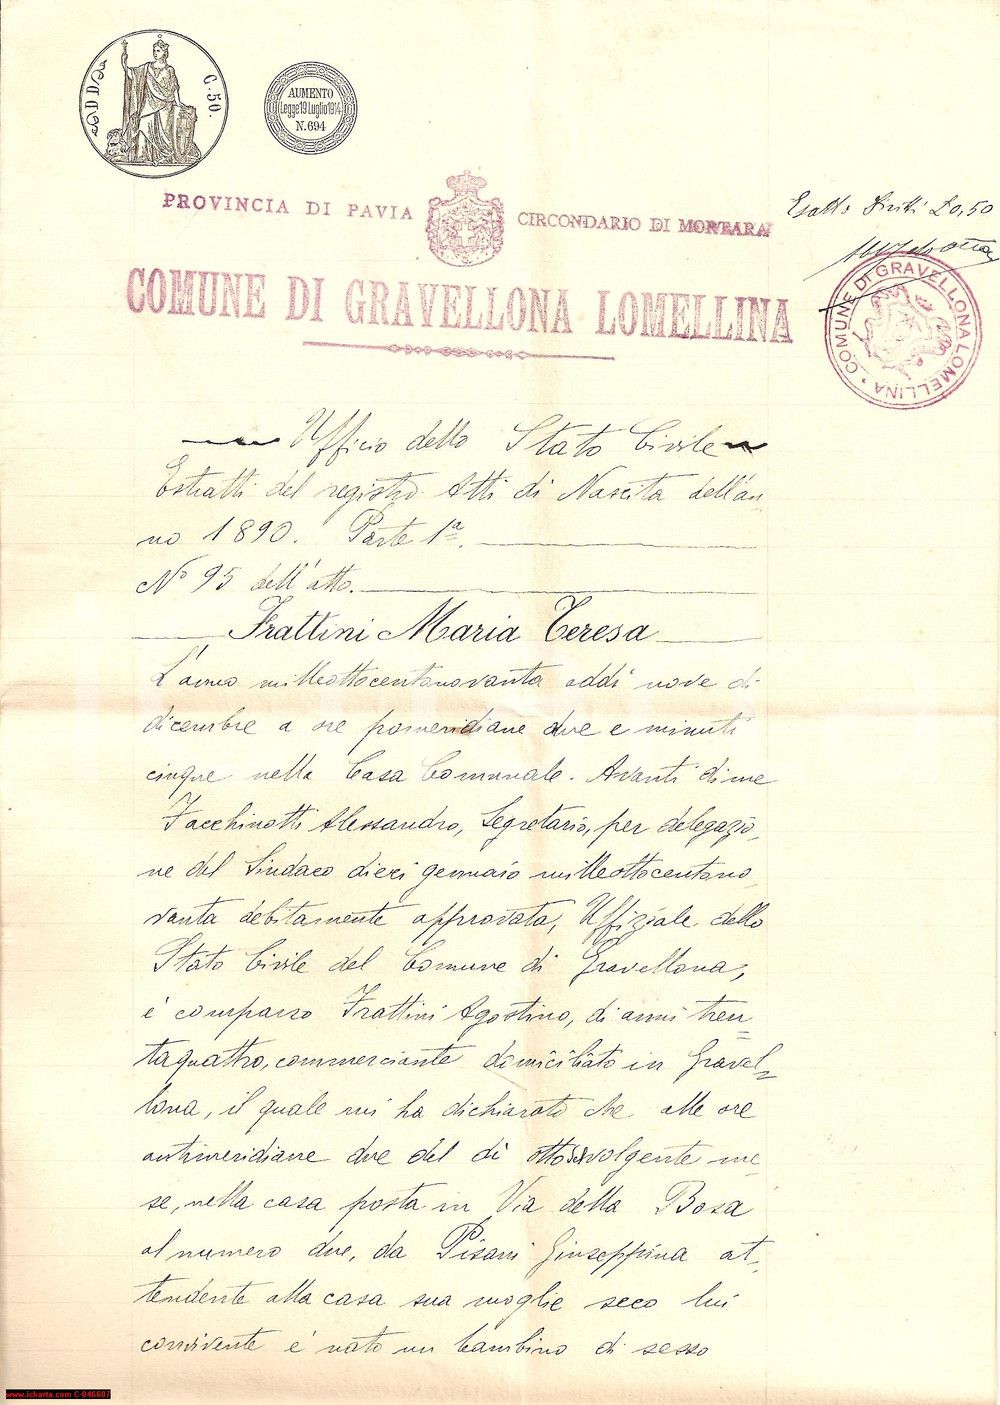 C. 50.
AUMENTO
Legge 19 Luglio 1914
N. 694
PROVINCIA DI PAVIA CIRCONDARIO DI MORTARA
COMUNE DI GRAVELLONA LOMELLINA
Esatto Diritti £0,50
COMUNE DI GRAVELLONA LOMELLINA
Ufficio dello Stato Civile
Estratti del registro Atti di Nascita dell'an-
no 1890. Parte 1ª.
Nº 95 dell'atto.
Frattini Maria Teresa
L'anno milleottocentonovanta addì nove di
dicembre a ore pomeridiane due e minuti
cinque nella Casa Comunale. Avanti di me
Facchinotti Alessandro, Segretario, per delegazio-
ne del Sindaco dieci gennaio milleottocentono-
vanta debitamente approvata, Uffiziale dello
Stato Civile del Comune di Gravellona,
è comparso Frattini Agostino, di anni tren-
taquattro, commerciante domiciliato in Gravel-
lona, il quale mi ha dichiarato che alle ore
antimeridiane due del dì otto volgente me-
se, nella casa posta in Via della Bosa
al numero due, da Pisani Giuseppina at-
tendente alla casa sua moglie seco lui
convivente è nato un bambino di sesso
www.icharta.com C-046607